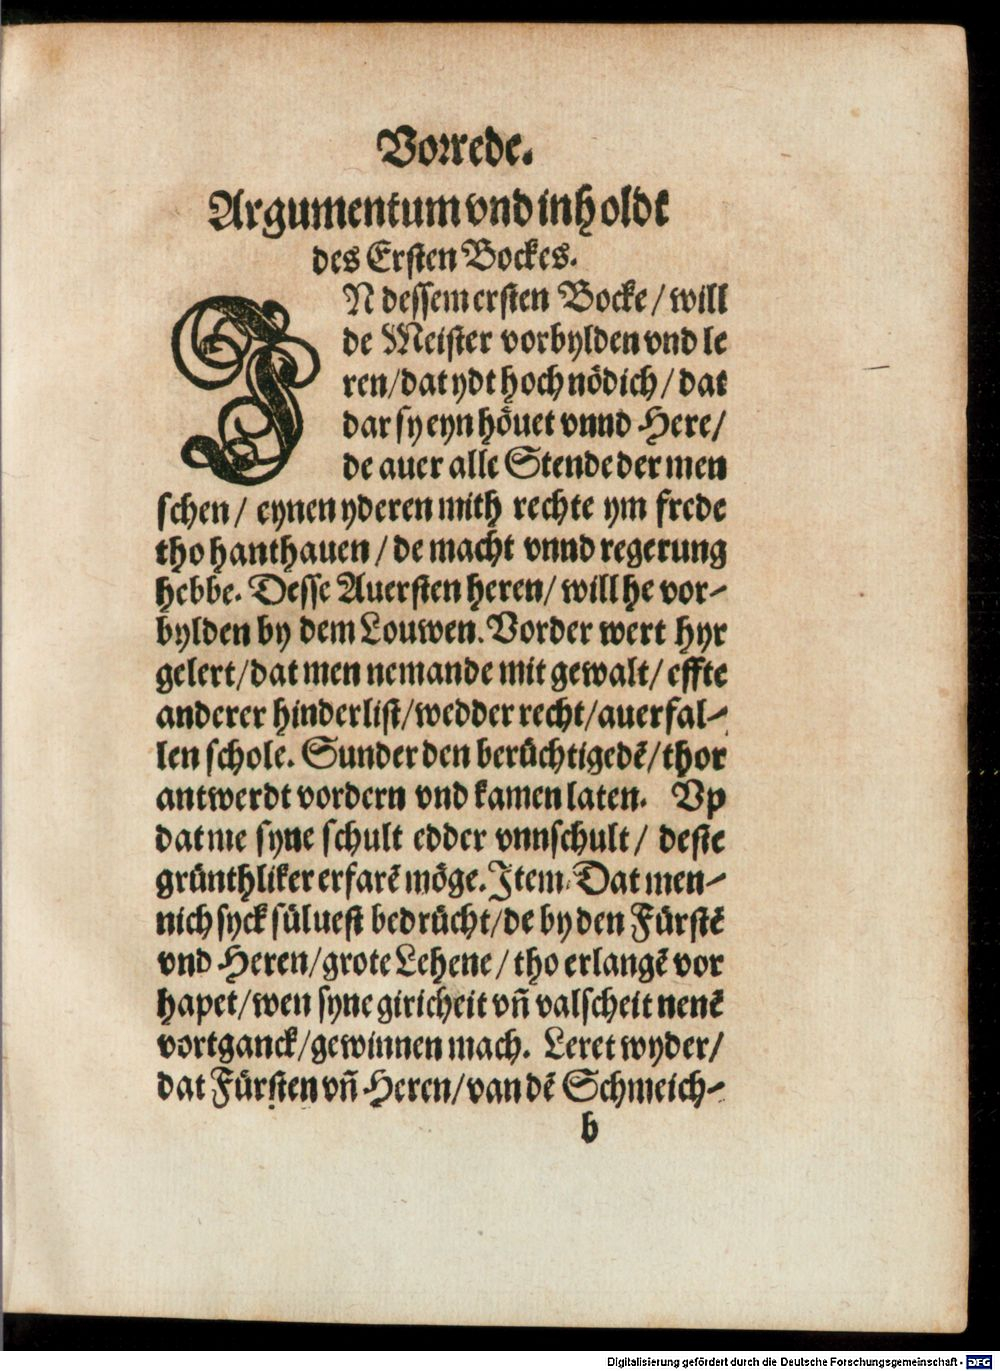 Vorrede.
Argumentum vnd inholdt
des Ersten Bockes.
IN dessem ersten Bocke / will
de Meister vorbylden vnd le
ren / dat ydt hoch nödich / dat
dar sy eyn höuet vnnd Here /
de auer alle Stende der men
schen / eynen yderen mith rechte ym frede
tho hanthauen / de macht vnnd regerung
hebbe. Desse Auersten heren / will he vor-
bylden by dem Louwen. Vorder wert hyr
gelert / dat men nemande mit gewalt / effte
anderer hinderlist / wedder recht / auerfal-
len schole. Sunder den berüchtigedē / thor
antwerdt vordern vnd kamen laten. Vp
dat me syne schult edder vnnschult / deste
grünthliker erfarē möge. Item. Dat men-
nich syck süluest bedrücht / de by den Fürstē
vnd Heren / grote Lehene / tho erlangē vor
hapet / wen syne giricheit vñ valscheit nenē
vortganck / gewinnen mach. Leret wyder /
dat Fürsten vñ Heren / van dē Schmeich-
b
Digitalisierung gefördert durch die Deutsche Forschungsgemeinschaft - DFG